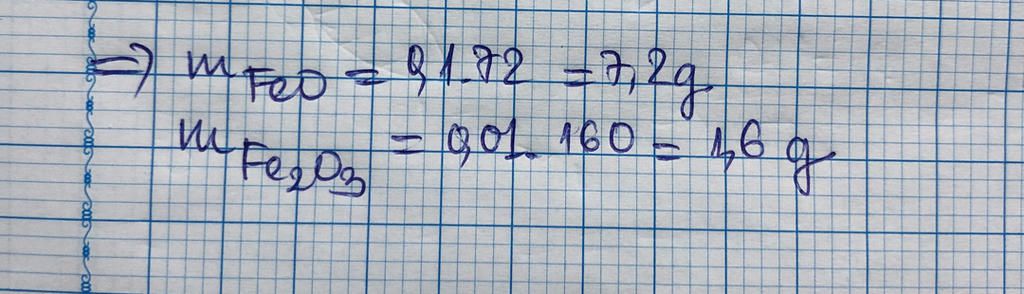 => m FeO = 0,1.72 = 7,2g
m Fe2O3 = 0,01.160 = 1,6 g